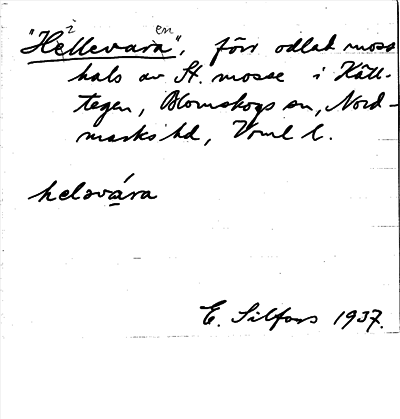 "Hellevara", förr odlat moss
hals av St. mosse i Käll-
tegen, Blomskogs sn, Nord-
marks hd, Vrml l.
helavára
E. Silfors 1937.